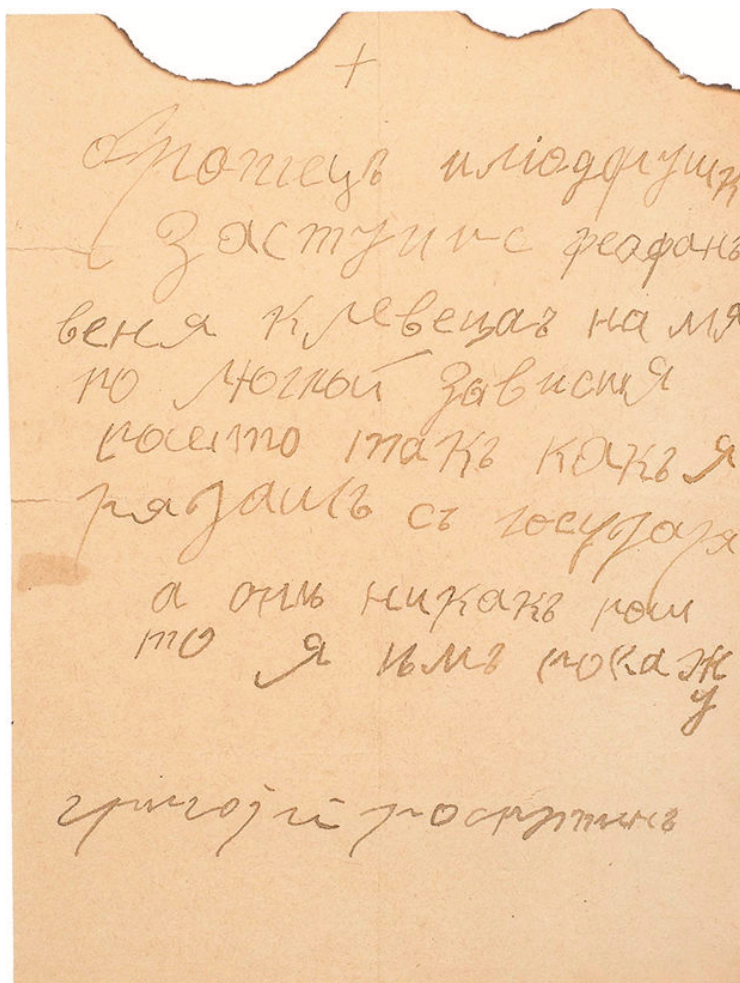 +
братецъ илиодорушк
Заступис феофанъ
веня клевещаъ на мя
по лютый зависия
пошто такъ какъ я
рядаись съ государя
а онъ никакъ пош
то я имъ покаж
у
григорий роспутинъ